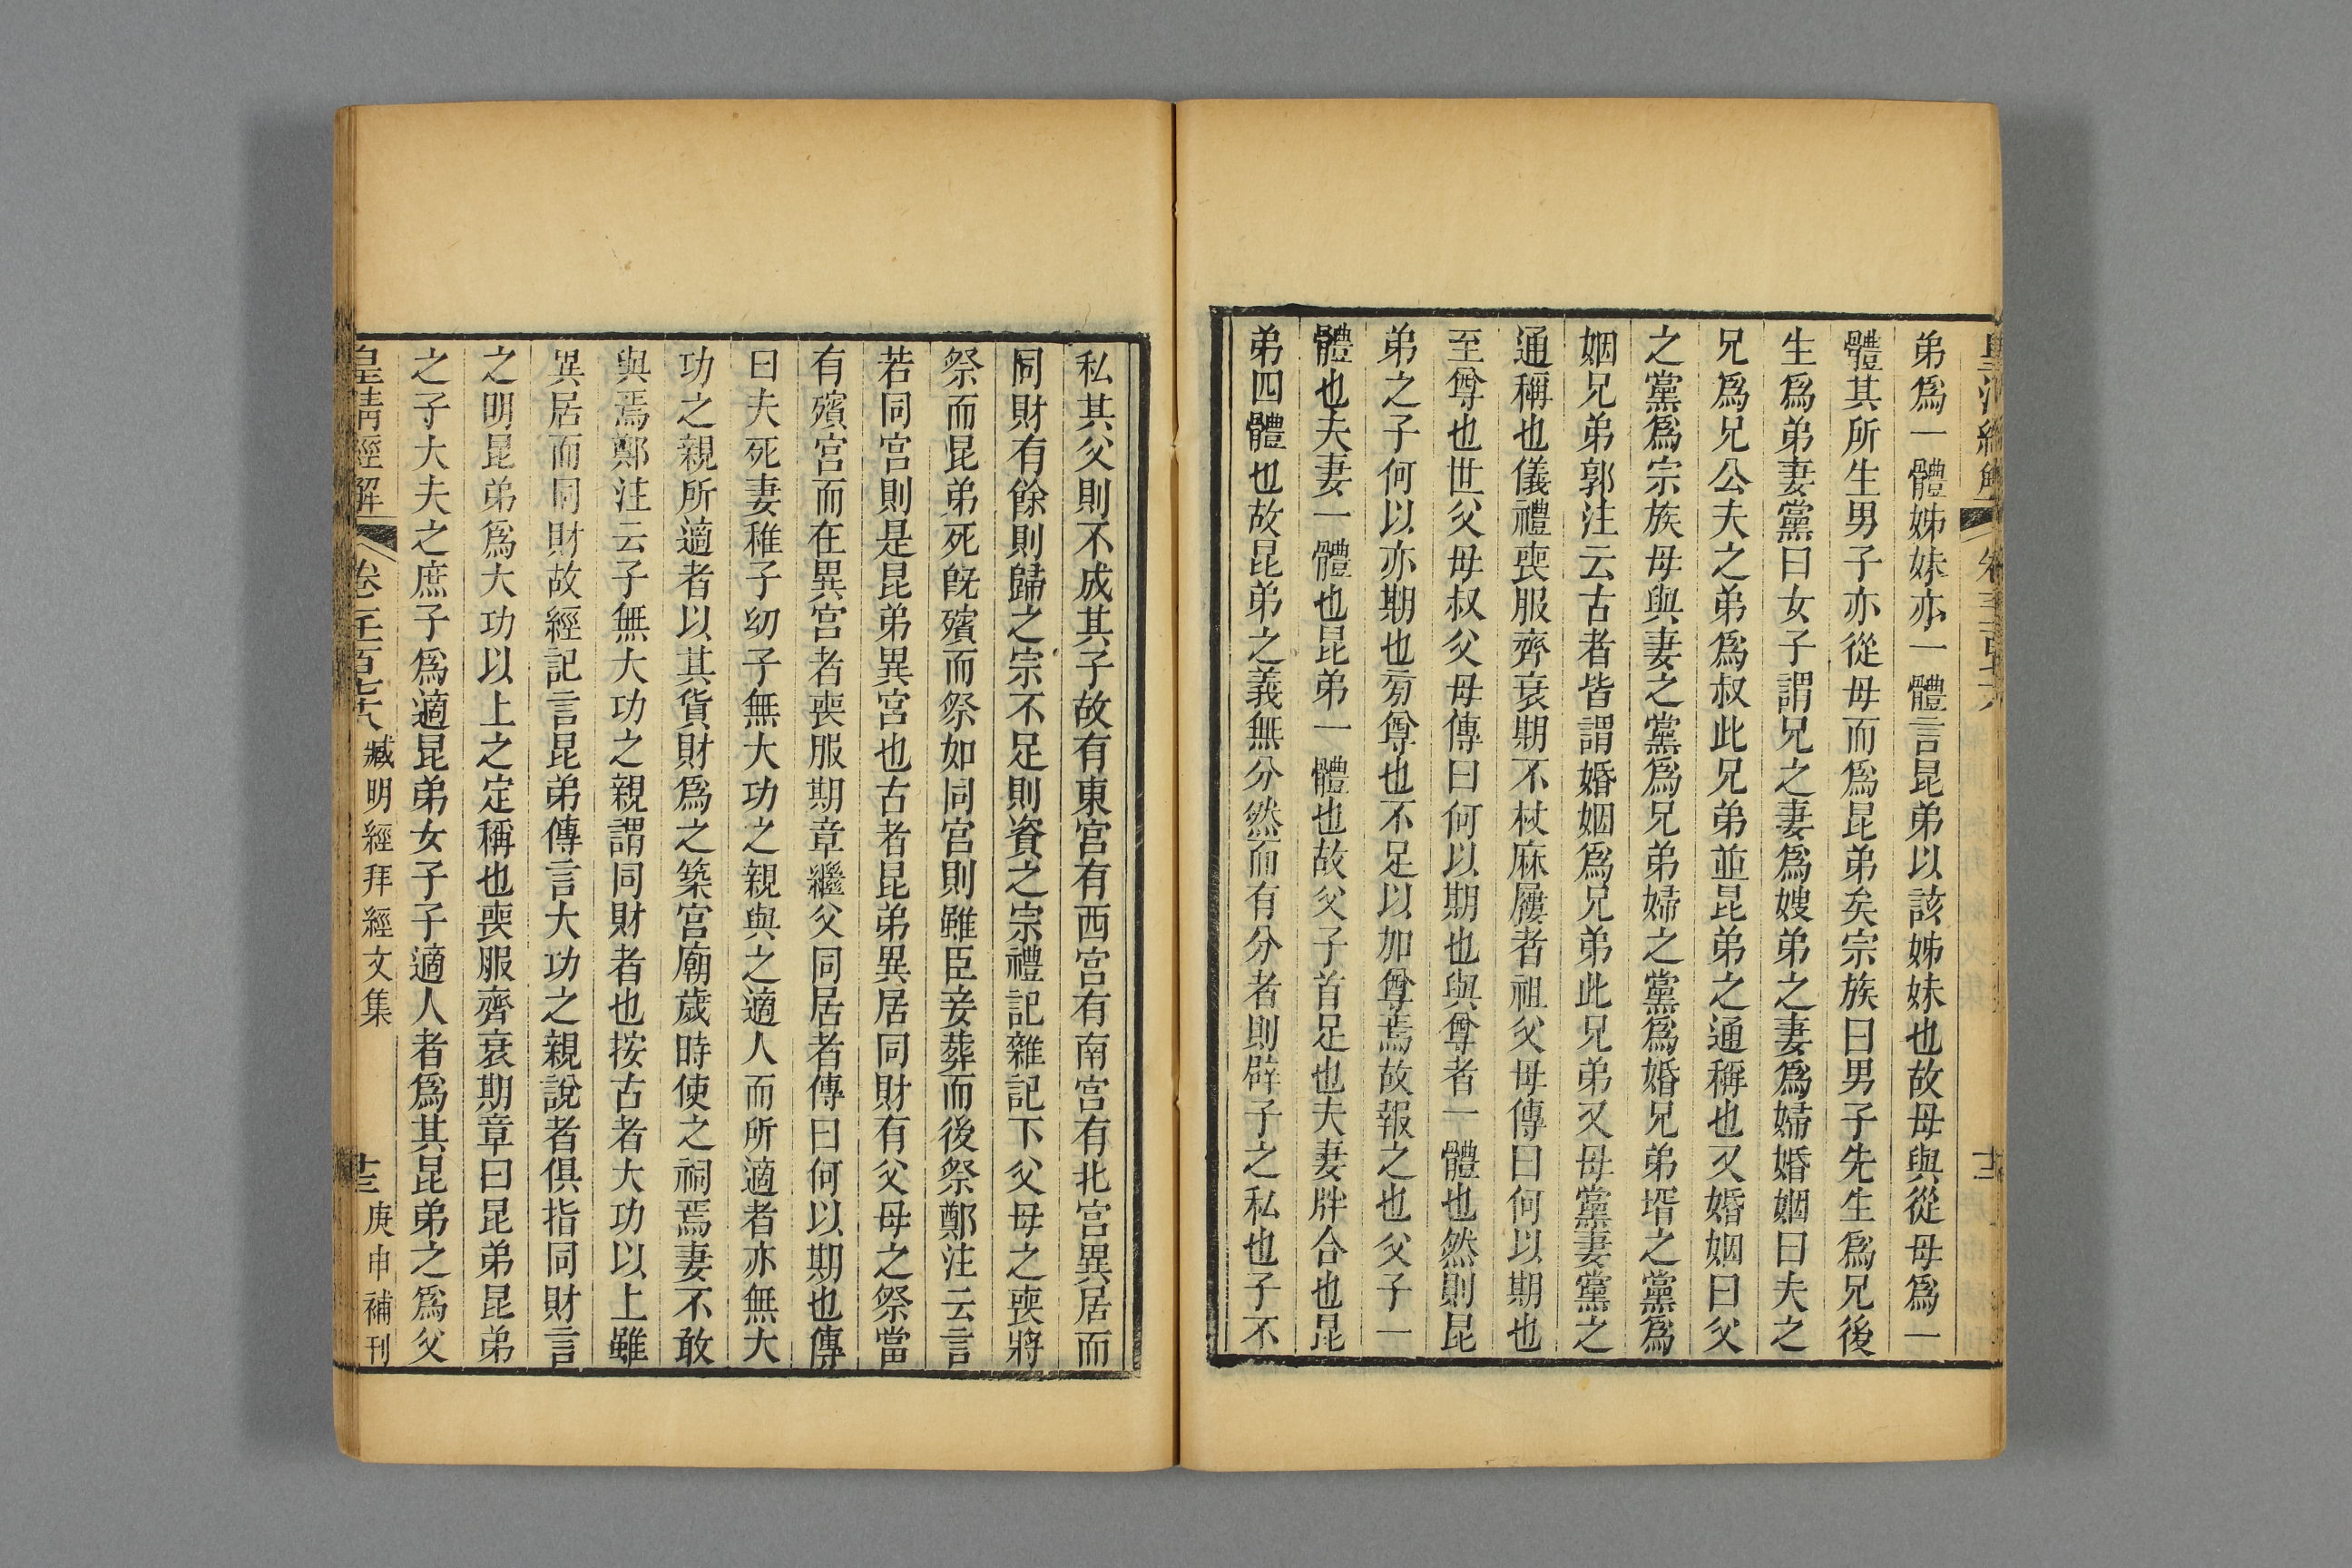 弟爲一體姊妹亦一體言昆弟以該姊妹也故母與從母爲一
體其所生男子亦從母而爲昆弟矣宗族曰男子先生爲兄後
生爲弟妻黨曰女子謂兄之妻爲嫂弟之妻爲婦婚姻曰夫之
兄爲兄公夫之弟爲叔此兄弟並昆弟之通稱也又婚姻曰父
之黨爲宗族母與妻之黨爲兄弟婦之黨爲婚兄弟壻之黨爲
姻兄弟郭注云古者皆謂婚姻爲兄弟此兄弟又母黨妻黨之
通稱也儀禮喪服齊衰期不杖麻屨者祖父母傳曰何以期也
至尊也世父母叔父母傳曰何以期也與尊者一體也然則昆
弟之子何以亦期也旁尊也不足以加尊焉故報之也父子一
體也夫妻一體也昆弟一體也故父子首足也夫妻牉合也昆
弟四體也故昆弟之義無分然而有分者則辟子之私也子不
私其父則不成其子故有東宮有西宮有南宮有北宮異居而
同財有餘則歸之宗不足則資之宗禮記雜記下父母之喪將
祭而昆弟死旣殯而祭如同宮則雖臣妾葬而後祭鄭注云言
若同宮則是昆弟異宮也古者昆弟異居同財有父母之祭當
有殯宮而在異宮者喪服期章繼父同居者傳曰何以期也傳
曰夫死妻稚子幼子無大功之親與之適人而所適者亦無大
功之親所適者以其貨財爲之築宮廟歲時使之祠焉妻不敢
與焉鄭注云子無大功之親謂同財者也按古者大功以上雖
異居而同財故經記言昆弟傳言大功之親說者俱指同財言
之明昆弟爲大功以上之定稱也喪服齊衰期章曰昆弟昆弟
之子大夫之庶子爲適昆弟女子子適人者爲其昆弟之爲父
皇清經解 卷 臧明經拜經文集 庚申補刊